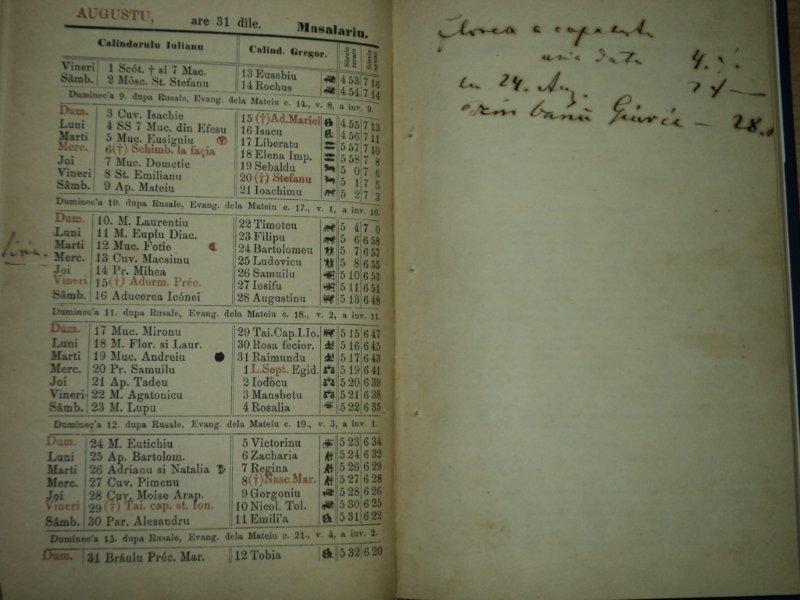 AUGUSTU, are 31 dile. Masalariu.
Calindarulu Iulianu Calind. Gregor. Sórele resare Sórele apune
Vineri 1 Scót. † si 7 Mac. 13 Eusebiu 4 53 7 16
Sâmb. 2 Mósc. St. Stefanu 14 Rochus 4 54 7 14
Duminec'a 9. dupa Rusale, Evang. dela Mateiu c. 14., v. 8, a inv. 9.
Dum. 3 Cuv. Isachie 15 (†)Ad.Mariei 4 55 7 13
Luni 4 SS 7 Muc. din Efesu 16 Isacu 4 56 7 11
Marti 5 Muc. Eusigniu 17 Liberatu 5 57 7 10
Merc. 6(†) Schimb. la façia 18 Elena Imp. 5 58 7 8
Joi 7 Muc. Dometie 19 Sebaldu 5 0 7 6
Vineri 8 St. Emilianu 20 (†) Stefanu 5 1 7 5
Sâmb. 9 Ap. Mateiu 21 Ioachimu 5 2 7 3
Duminec'a 10. dupa Rusale, Evang. dela Mateiu c. 17., v. 1, a inv. 10.
Dum. 10. M. Laurentiu 22 Timoteu 5 4 7 0
Luni 11 M. Euplu Diac. 23 Filipu 5 6 6 58
Marti 12 Muc. Fotie 24 Bartolomeu 5 7 6 57
Merc. 13 Cuv. Macsimu 25 Ludovicu 5 8 6 55
Joi 14 Pr. Mihea 26 Samuilu 5 10 6 53
Vineri 15(†) Adorm. Préc. 27 Iosifu 5 11 6 51
Sâmb. 16 Aducerea Icónei 28 Augustinu 5 13 6 48
Duminec'a 11. dupa Rusale, Evang. dela Mateiu c. 18., v. 2, a inv. 11.
Dum. 17 Muc. Mironu 29 Tai.Cap.I.Io. 5 15 6 47
Luni 18 M. Flor. si Laur. 30 Rosa fecior. 5 16 6 45
Marti 19 Muc. Andreiu 31 Raimundu 5 17 6 43
Merc. 20 Pr. Samuilu 1 L.Sept. Egid. 5 19 6 41
Joi 21 Ap. Tadeu 2 Iodócu 5 20 6 39
Vineri 22 M. Agatonicu 3 Mansbetu 5 21 6 38
Sâmb. 23 M. Lupu 4 Rosalia 5 22 6 35
Duminec'a 12. dupa Rusale, Evang. dela Mateiu c. 19., v. 3, a inv. 1.
Dum. 24 M. Eutichiu 5 Victorinu 5 23 6 34
Luni 25 Ap. Bartolom. 6 Zacharia 5 24 6 32
Marti 26 Adrianu si Natalia 7 Regina 5 26 6 29
Merc. 27 Cuv. Pimenu 8(†)Nasc.Mar. 5 27 6 28
Joi 28 Cuv. Moise Arap. 9 Gorgoniu 5 28 6 26
Vineri 29 (†) Tai. cap. st. Ion. 10 Nicol. Tol. 5 30 6 25
Sâmb. 30 Par. Alesandru 11 Emili'a 5 31 6 22
Duminec'a 13. dupa Rusale, Evang. dela Mateiu c. 21., v. 4, a inv. 2.
Dum. 31 Brâulu Préc. Mar. 12 Tobia 5 32 6 20
a
data 4.
in 24. Aug. 24 —
banii — 28.